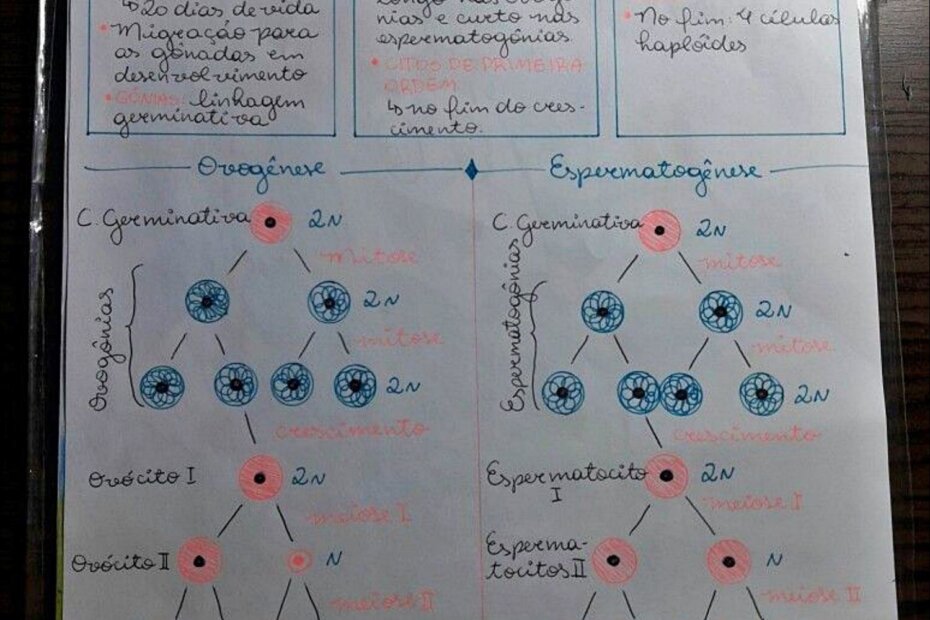 ↳20 dias de vida
• Migração para
as gônadas em
desenvolvimento
• GÔNIAS: linhagem
germinativa
nias e curto nas
espermatogônias.
• CITOS DE PRIMEIRA
ORDEM
↳no fim do cres-
cimento.
• No fim: 4 células
haploîdes
Ovogênese
C. Germinativa 2N
mitose
Ovogônias
2N
mitose
2N
crescimento
Ovócito I 2N
meiose I
Ovócito II N
meiose II
Espermatogênese
C. Germinativa 2N
mitose
Espermatogônias
2N
mitose
2N
crescimento
Espermatocito 2N
I
meiose I
Esperma-
tocitos II N
meiose II